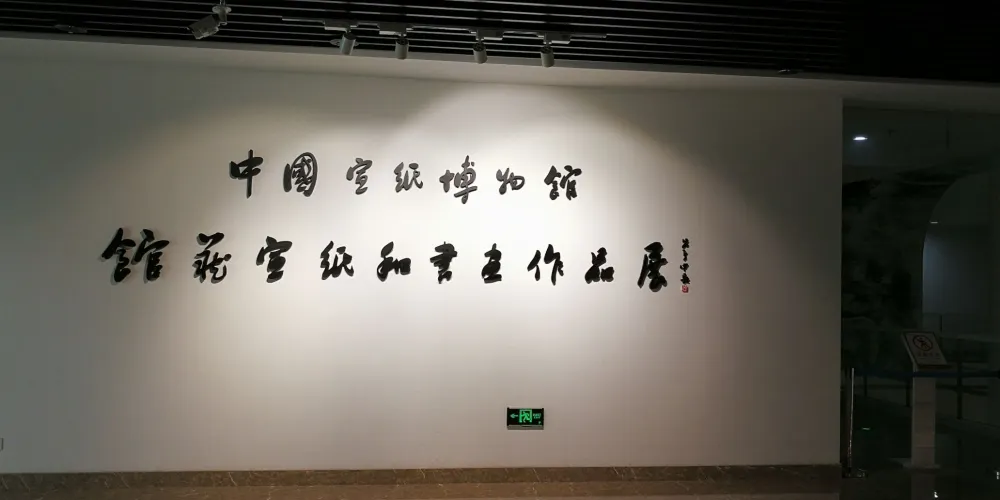 中國宣紙博物館
館藏宣紙和書畫作品展